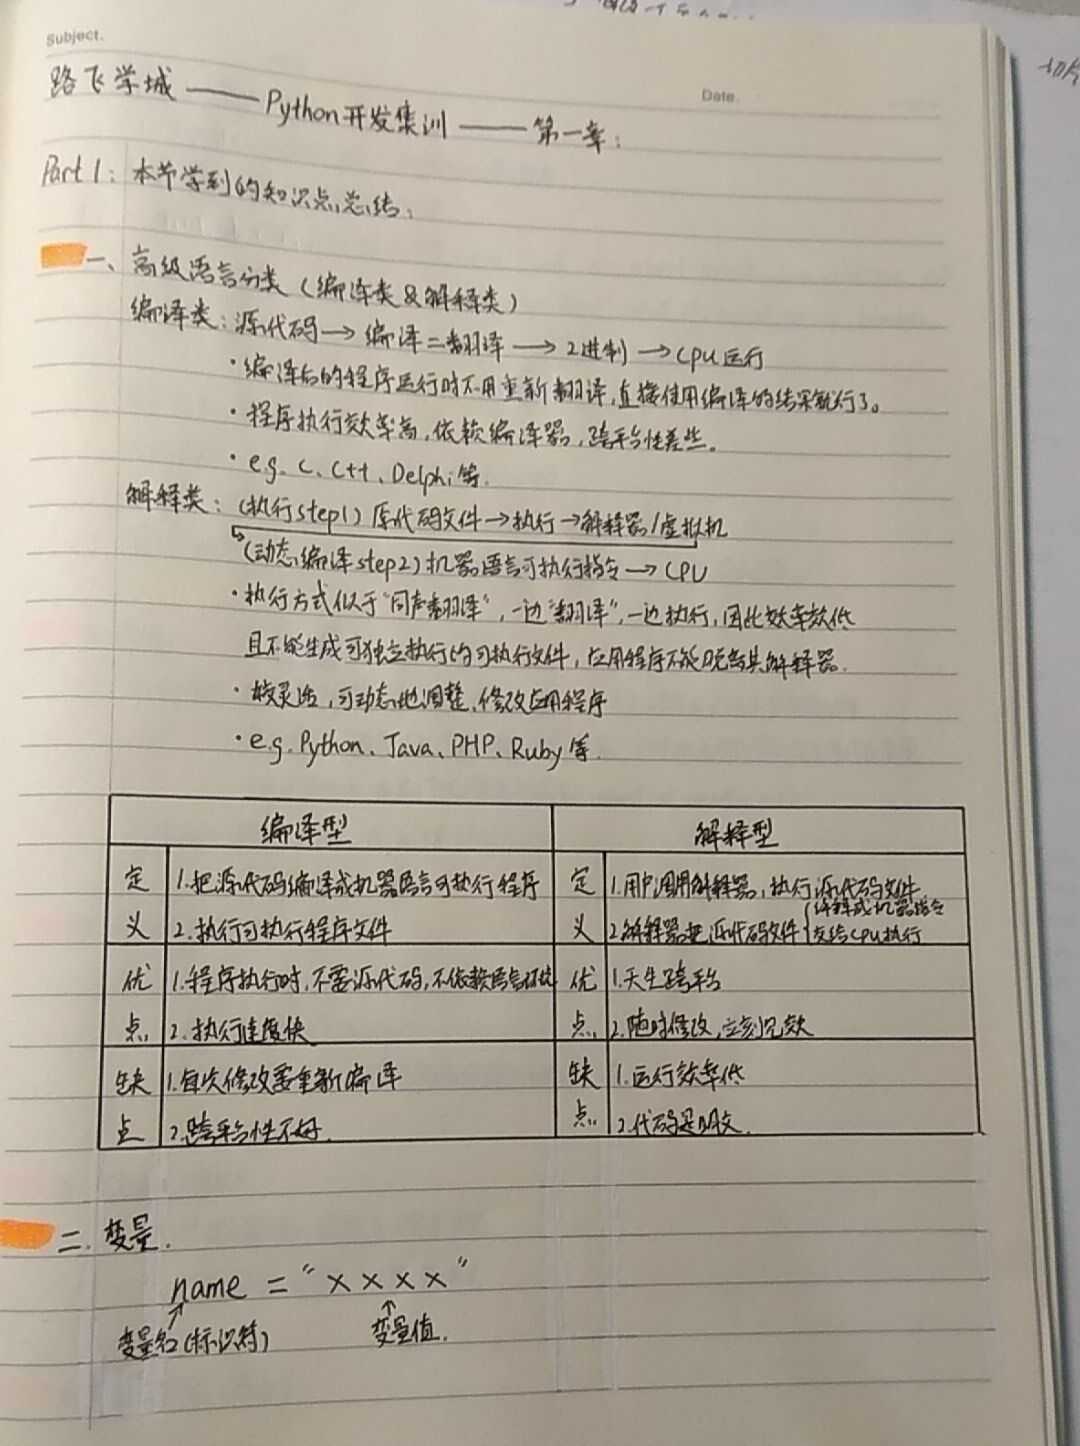 Subject.
Date.
路飞学城——Python开发集训——第一章：
Part 1：本节学到的知识点总结：
一、高级语言分类（编译类&解释类）
编译类：源代码→编译=翻译→2进制→CPU运行
·编译后的程序运行时不用重新翻译，直接使用编译的结果就行了。
·程序执行效率高，依赖编译器，跨平台性差些。
·e.g. C、C++、Delphi等.
解释类：(执行step1）源代码文件→执行→解释器/虚拟机
(动态编译step2)机器语言可执行指令→CPU
·执行方式似于“同声翻译”，一边“翻译”，一边执行，因此效率较低
且不能生成可独立执行的可执行文件，应用程序不能脱离其解释器.
·较灵活，可动态地调整、修改应用程序
·e.g. Python、Java、PHP、Ruby等.
编译型 解释型
定义 1.把源代码编译成机器语言可执行程序
2.执行可执行程序文件
定义 1.用户调用解释器，执行源代码文件
2.解释器把源代码文件{解释成机器指令
交给CPU执行
优点 1.程序执行时，不需源代码，不依赖语言环境
2.执行速度快
优点 1.天生跨平台
2.随时修改，立刻见效
缺点 1.每次修改需重新编译
2.跨平台性不好.
缺点 1.运行效率低
2.代码是明文
二.变量.
name = “××××”
变量名(标识符) 变量值.